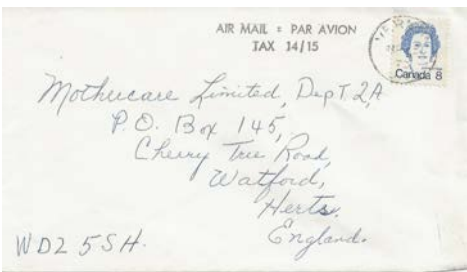 AIR MAIL = PAR AVION
TAX 14/15
Canada 8
Mothercare Limited, Dept 2A
P.O. Box 145,
Cherry Tree Road,
Watford,
Herts.
England.
WD2 5SH.